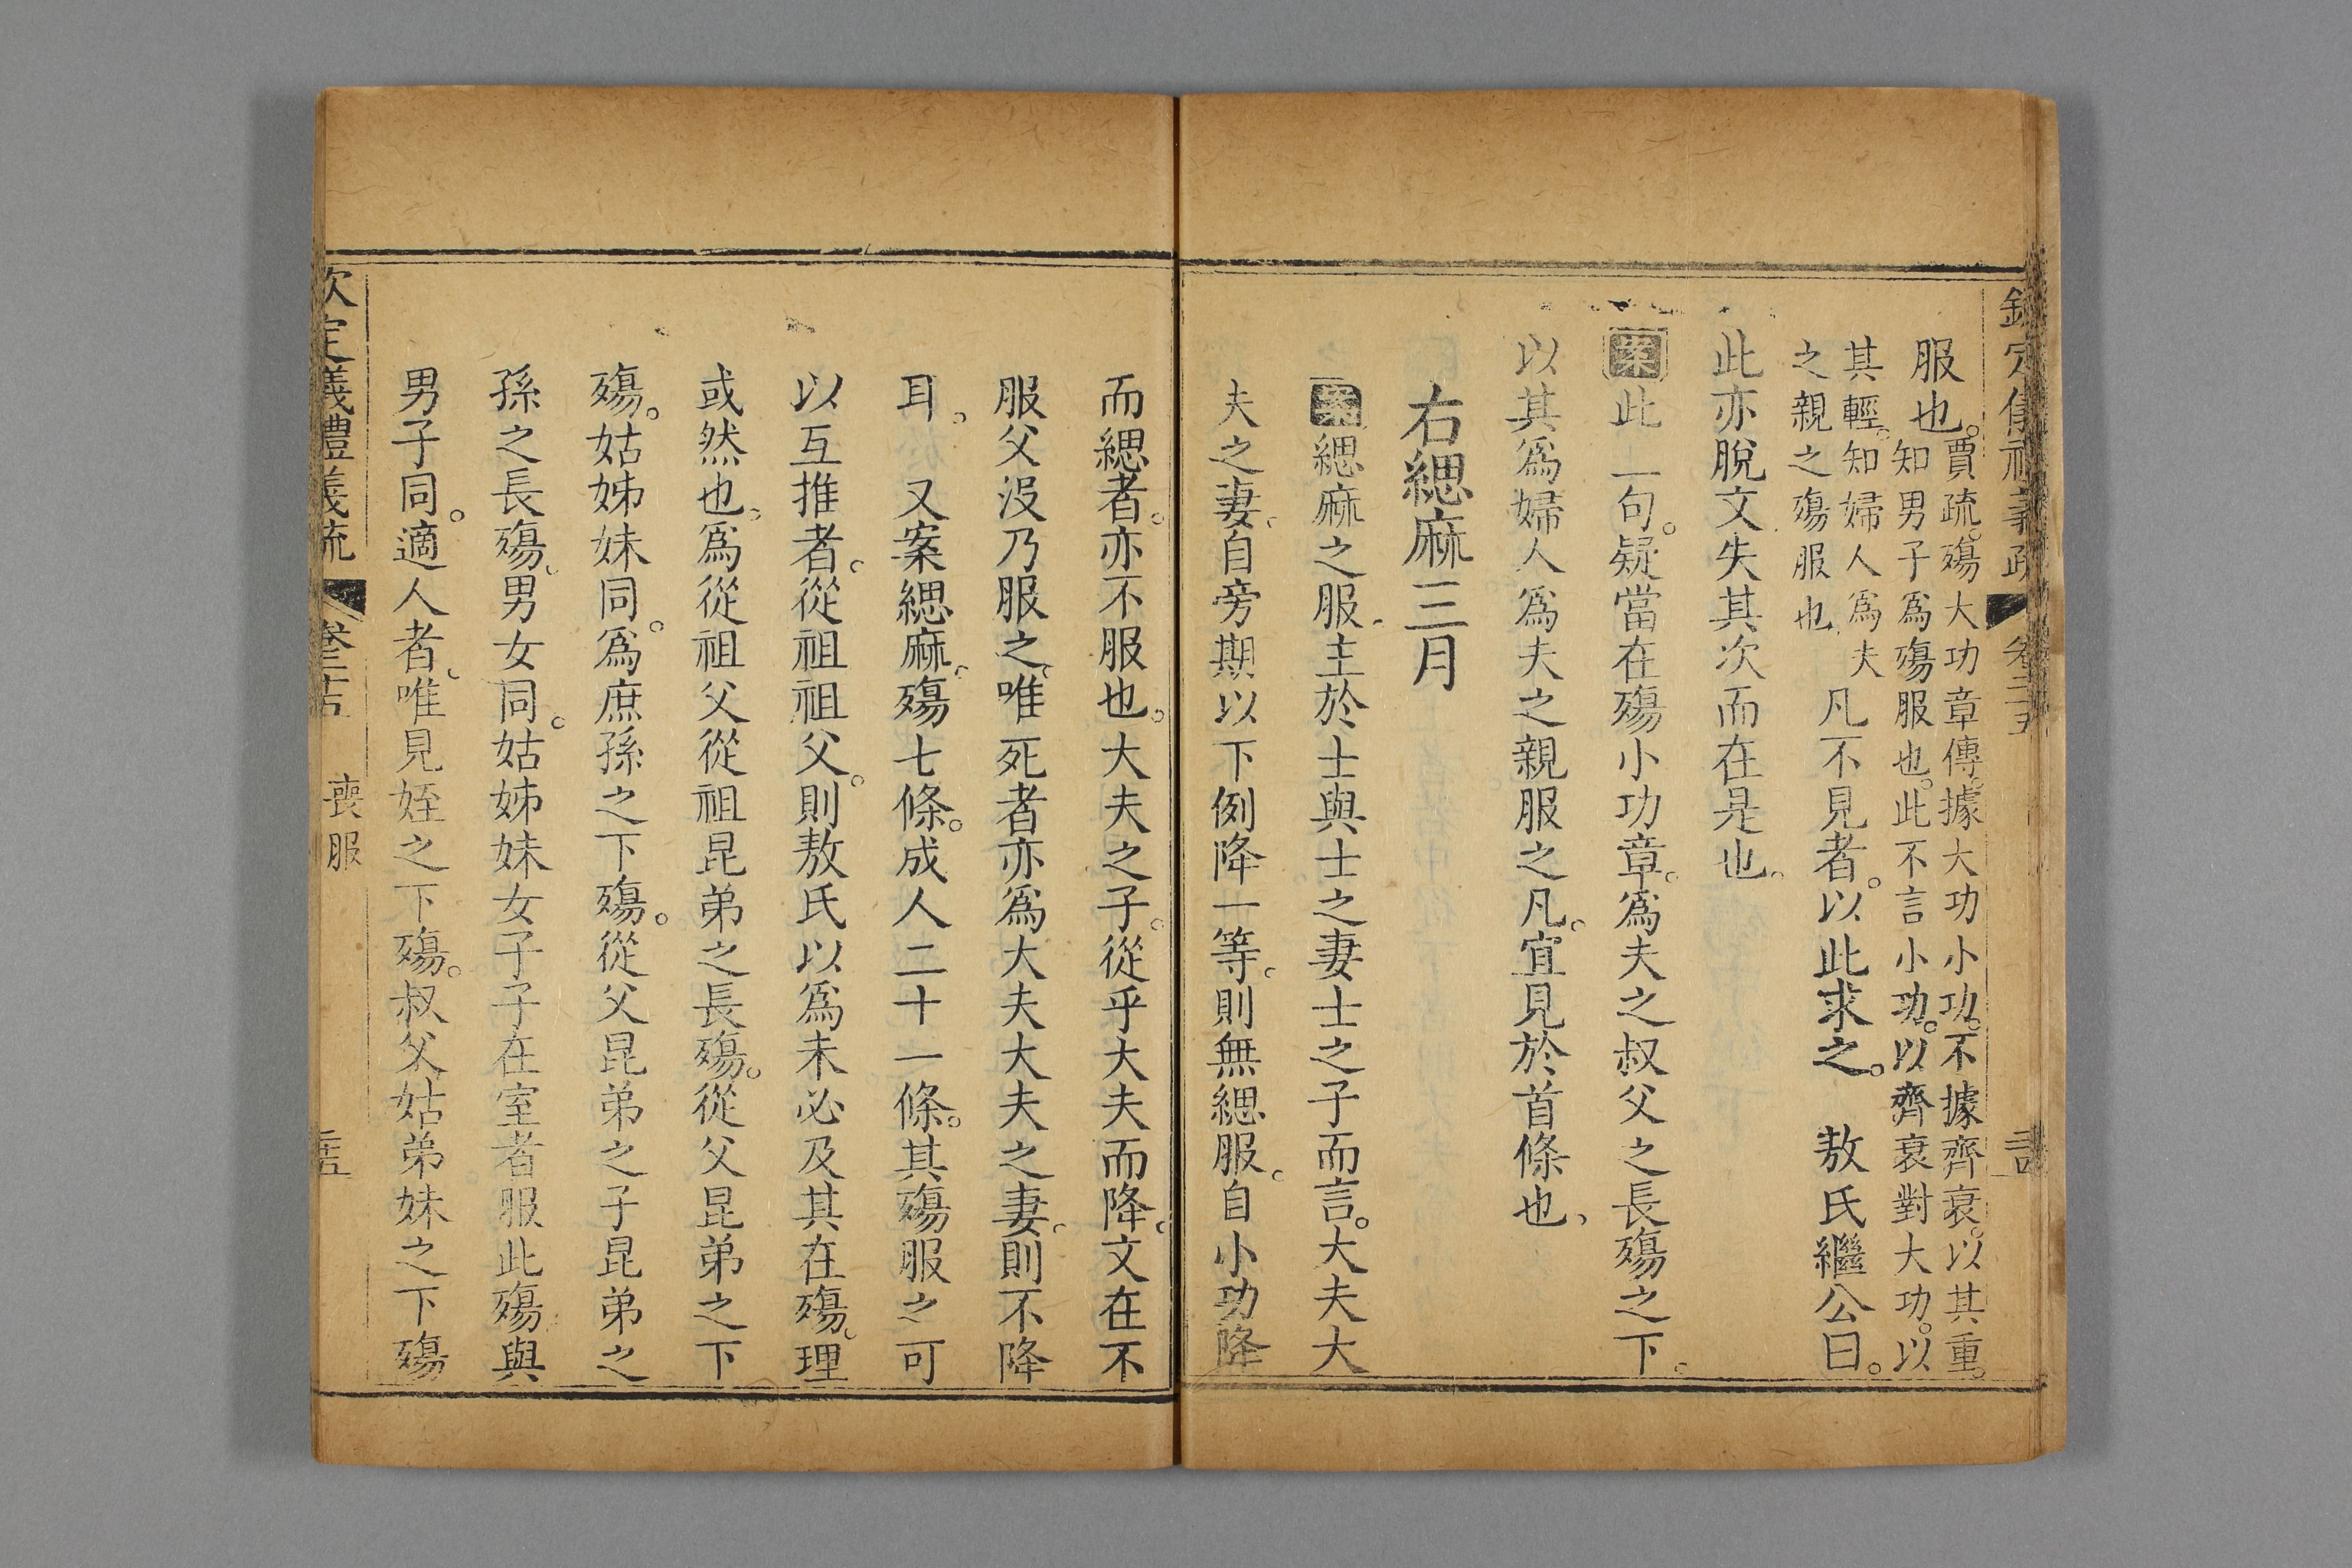 欽定儀禮義疏 卷二十五 喪服
服也。賈疏。殤大功章傳。據大功小功。不據齊衰。以其重。
知男子爲殤服也。此不言小功。以齊衰對大功。以
其輕。知婦人爲夫
之親之殤服也
凡不見者。以此求之。 敖氏繼公曰。
此亦脫文失其次而在是也。
案此一句。疑當在殤小功章。爲夫之叔父之長殤之下。
以其爲婦人爲夫之親服之凡。宜見於首條也、
右緦麻三月
案緦麻之服。主於士與士之妻士之子而言。大夫大
夫之妻。自旁期以下例降一等。則無緦服。自小功降
而緦者。亦不服也。大夫之子。從乎大夫而降。文在不
服父沒乃服之、唯死者亦爲大夫大夫之妻。則不降
耳。 又案緦麻。殤七條。成人二十一條。其殤服之可
以互推者。從祖祖父。則敖氏以爲未必及其在殤。理
或然也。爲從祖父從祖昆弟之長殤。從父昆弟之下
殤。姑姊妹同。爲庶孫之下殤。從父昆弟之子昆弟之
孫之長殤。男女同。姑姊妹女子子在室者服此殤與
男子同。適人者。唯見姪之下殤。叔父姑弟妹之下殤
欽定儀禮義疏 卷二十五 喪服 二十五